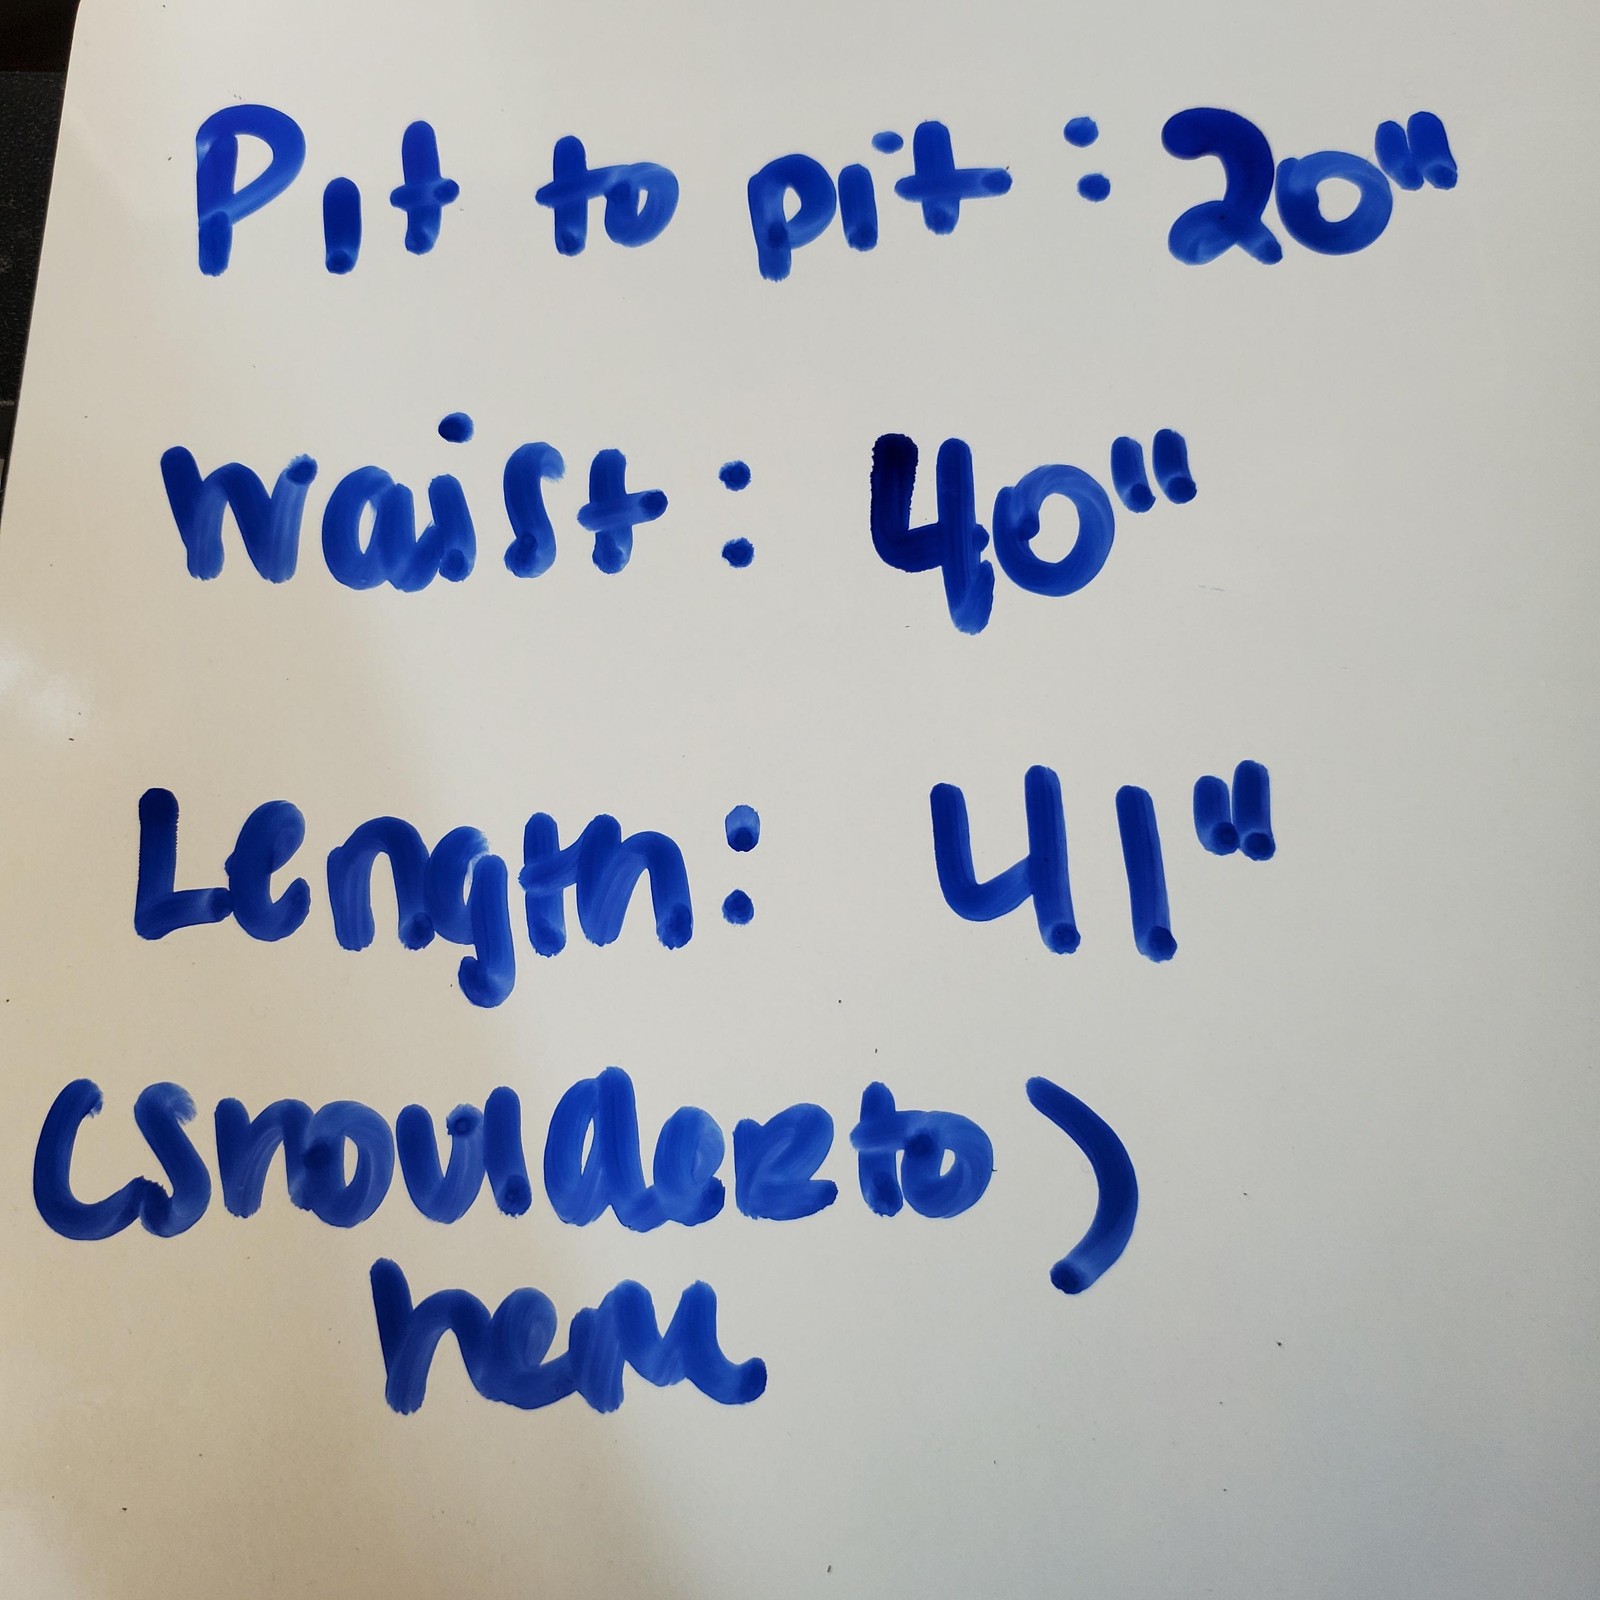 Pit to pit: 20"
Waist: 40"
Length: 41"
(shoulder to)
hem